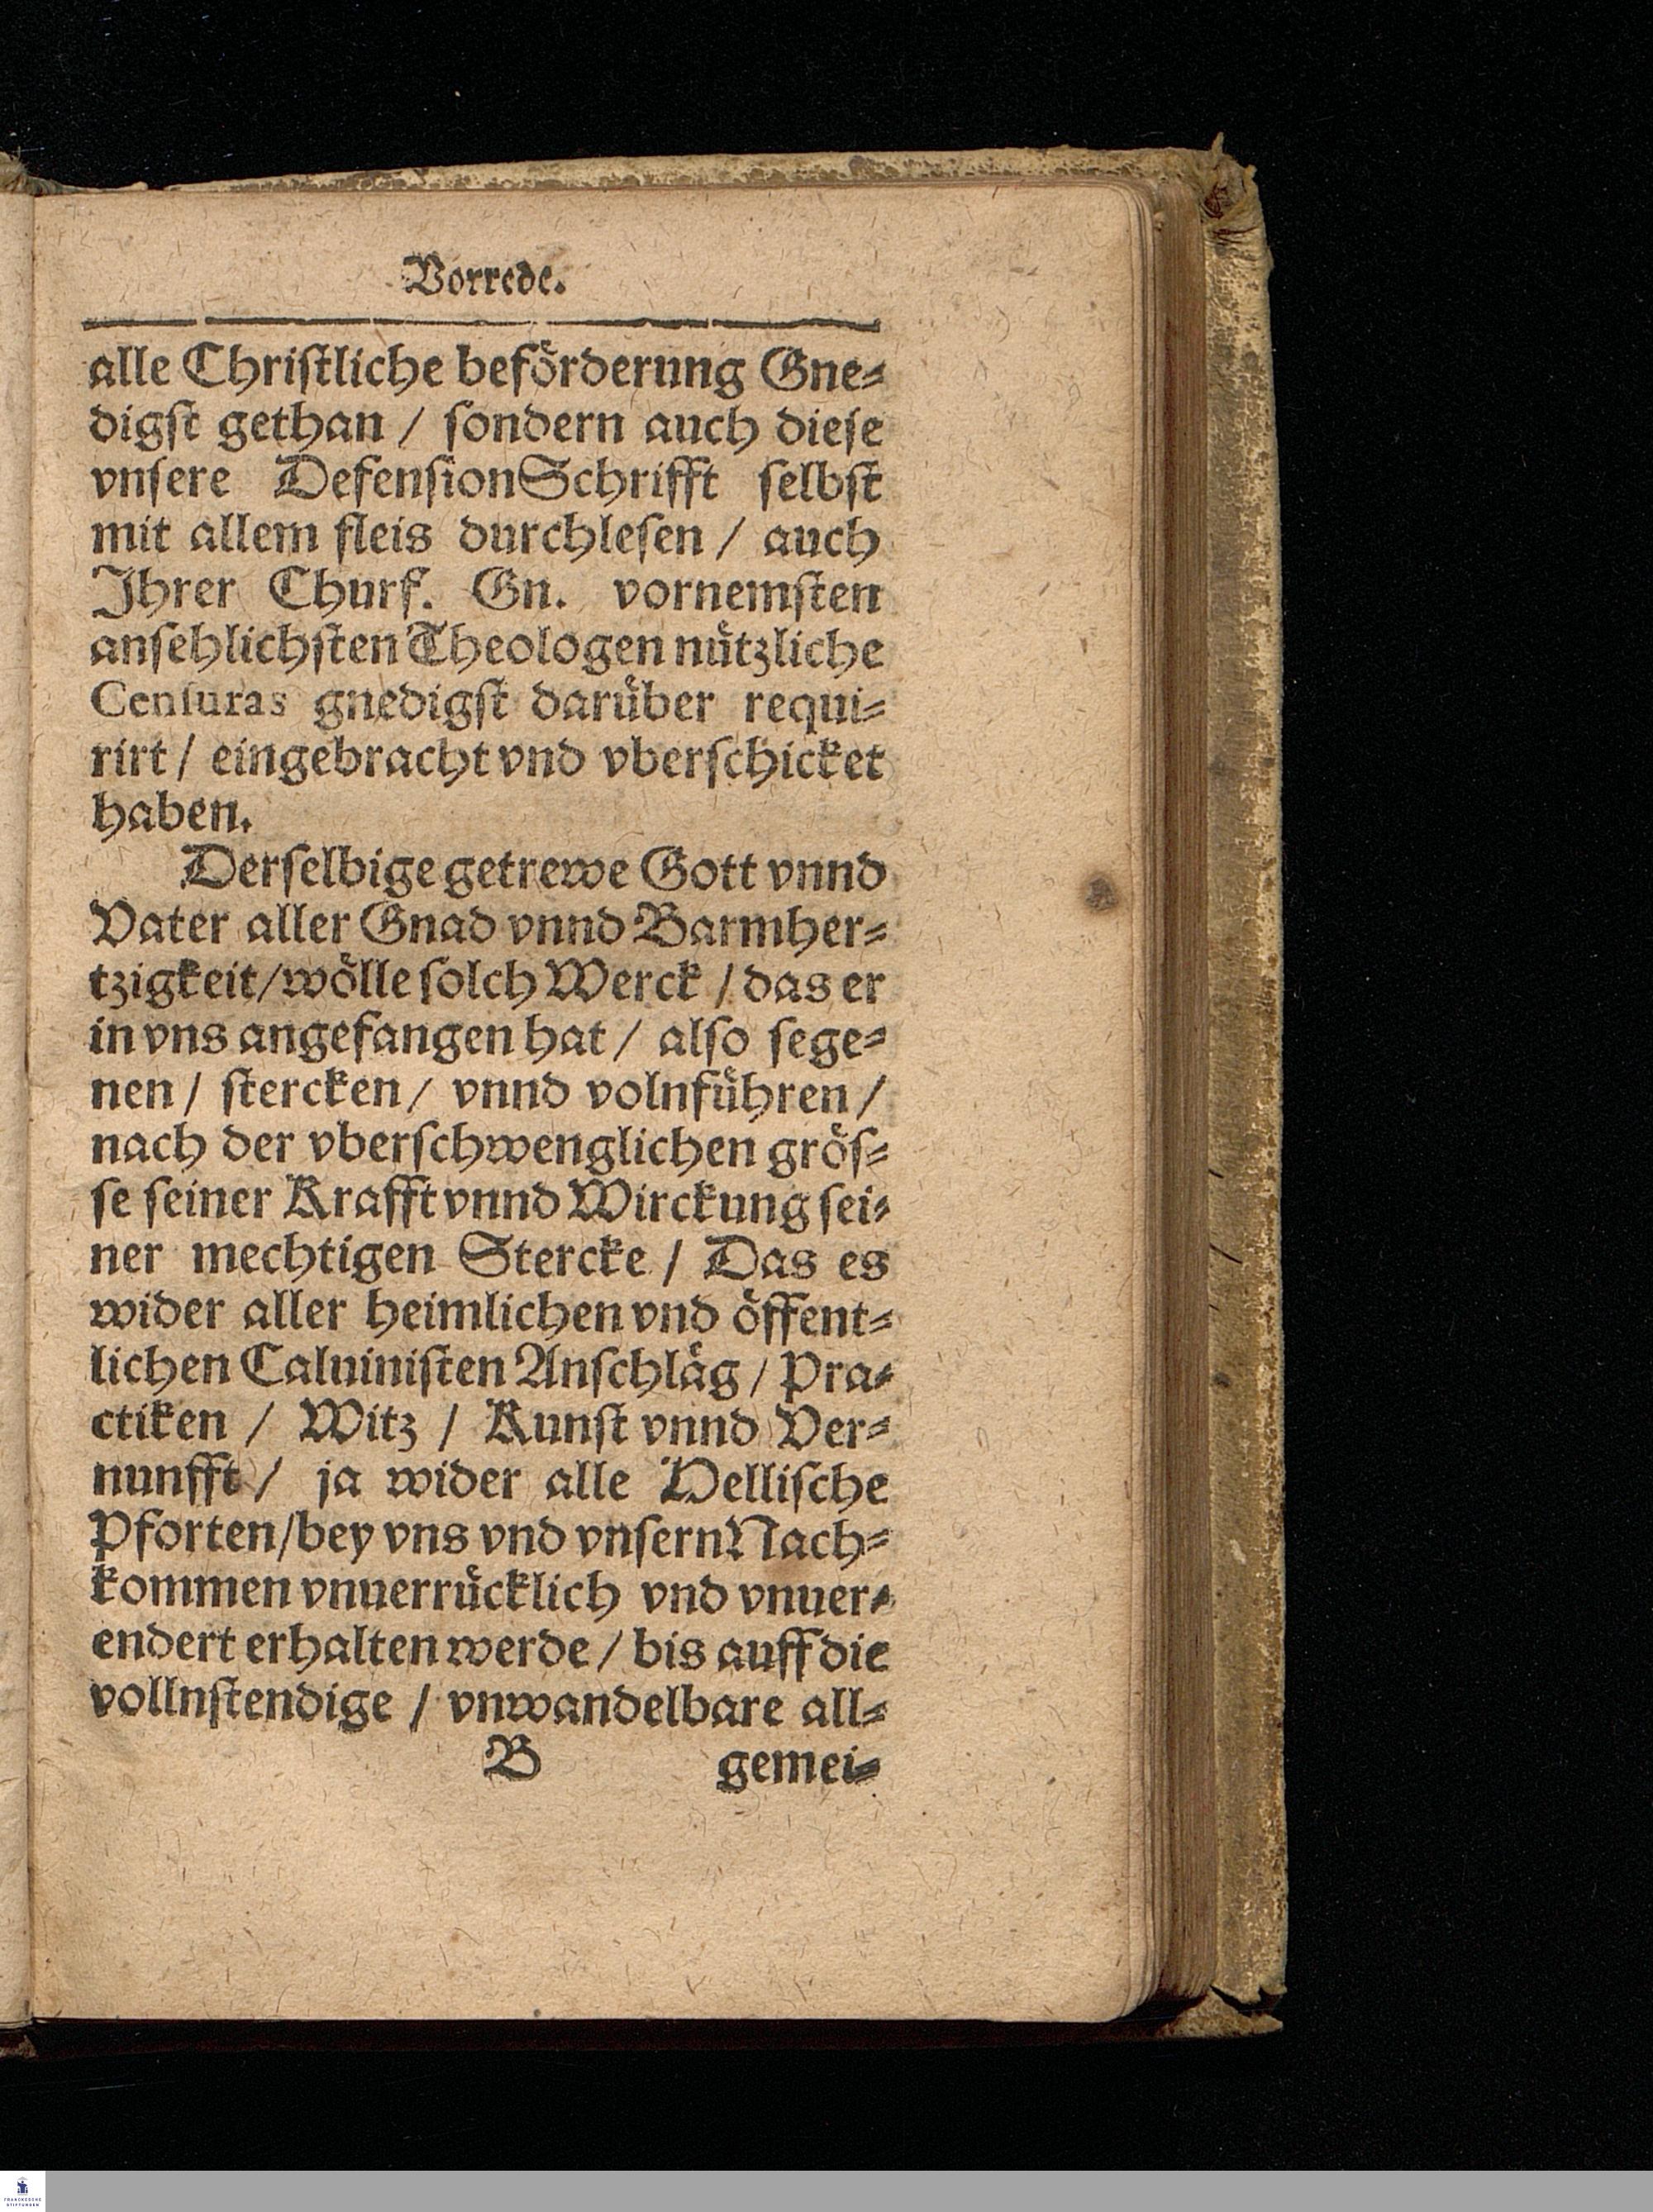 Vorrede.
alle Chriſtliche befoͤrderung Gne⸗
digſt gethan / ſondern auch dieſe
vnſere DefenſionSchrifft ſelbſt
mit allem fleis durchleſen / auch
Ihrer Churf. Gn. vornemſten
anſehlichſten Theologen nuͤtzliche
Cenſuras gnedigſt daruͤber requi⸗
rirt / eingebracht vnd vberſchicket
haben.
Derſelbige getrewe Gott vnnd
Vater aller Gnad vnnd Barmher⸗
tzigkeit/woͤlle ſolch Werck / das er
in vns angefangen hat / alſo ſege⸗
nen / ſtercken / vnnd volnfuͤhren /
nach der vberſchwenglichen groͤſ⸗
ſe ſeiner Krafft vnnd Wirckung ſei⸗
ner mechtigen Stercke / Das es
wider aller heimlichen vnd oͤffent⸗
lichen Caluiniſten Anſchlaͤg / Pra⸗
ctiken / Witz / Kunſt vnnd Ver⸗
nunfft / ja wider alle Helliſche
Pforten/bey vns vnd vnſern Nach⸗
kommen vnuerruͤcklich vnd vnuer⸗
endert erhalten werde / bis auff die
vollnſtendige / vnwandelbare all⸗
B gemei⸗
FRANCKESCHE
STIFTUNGEN